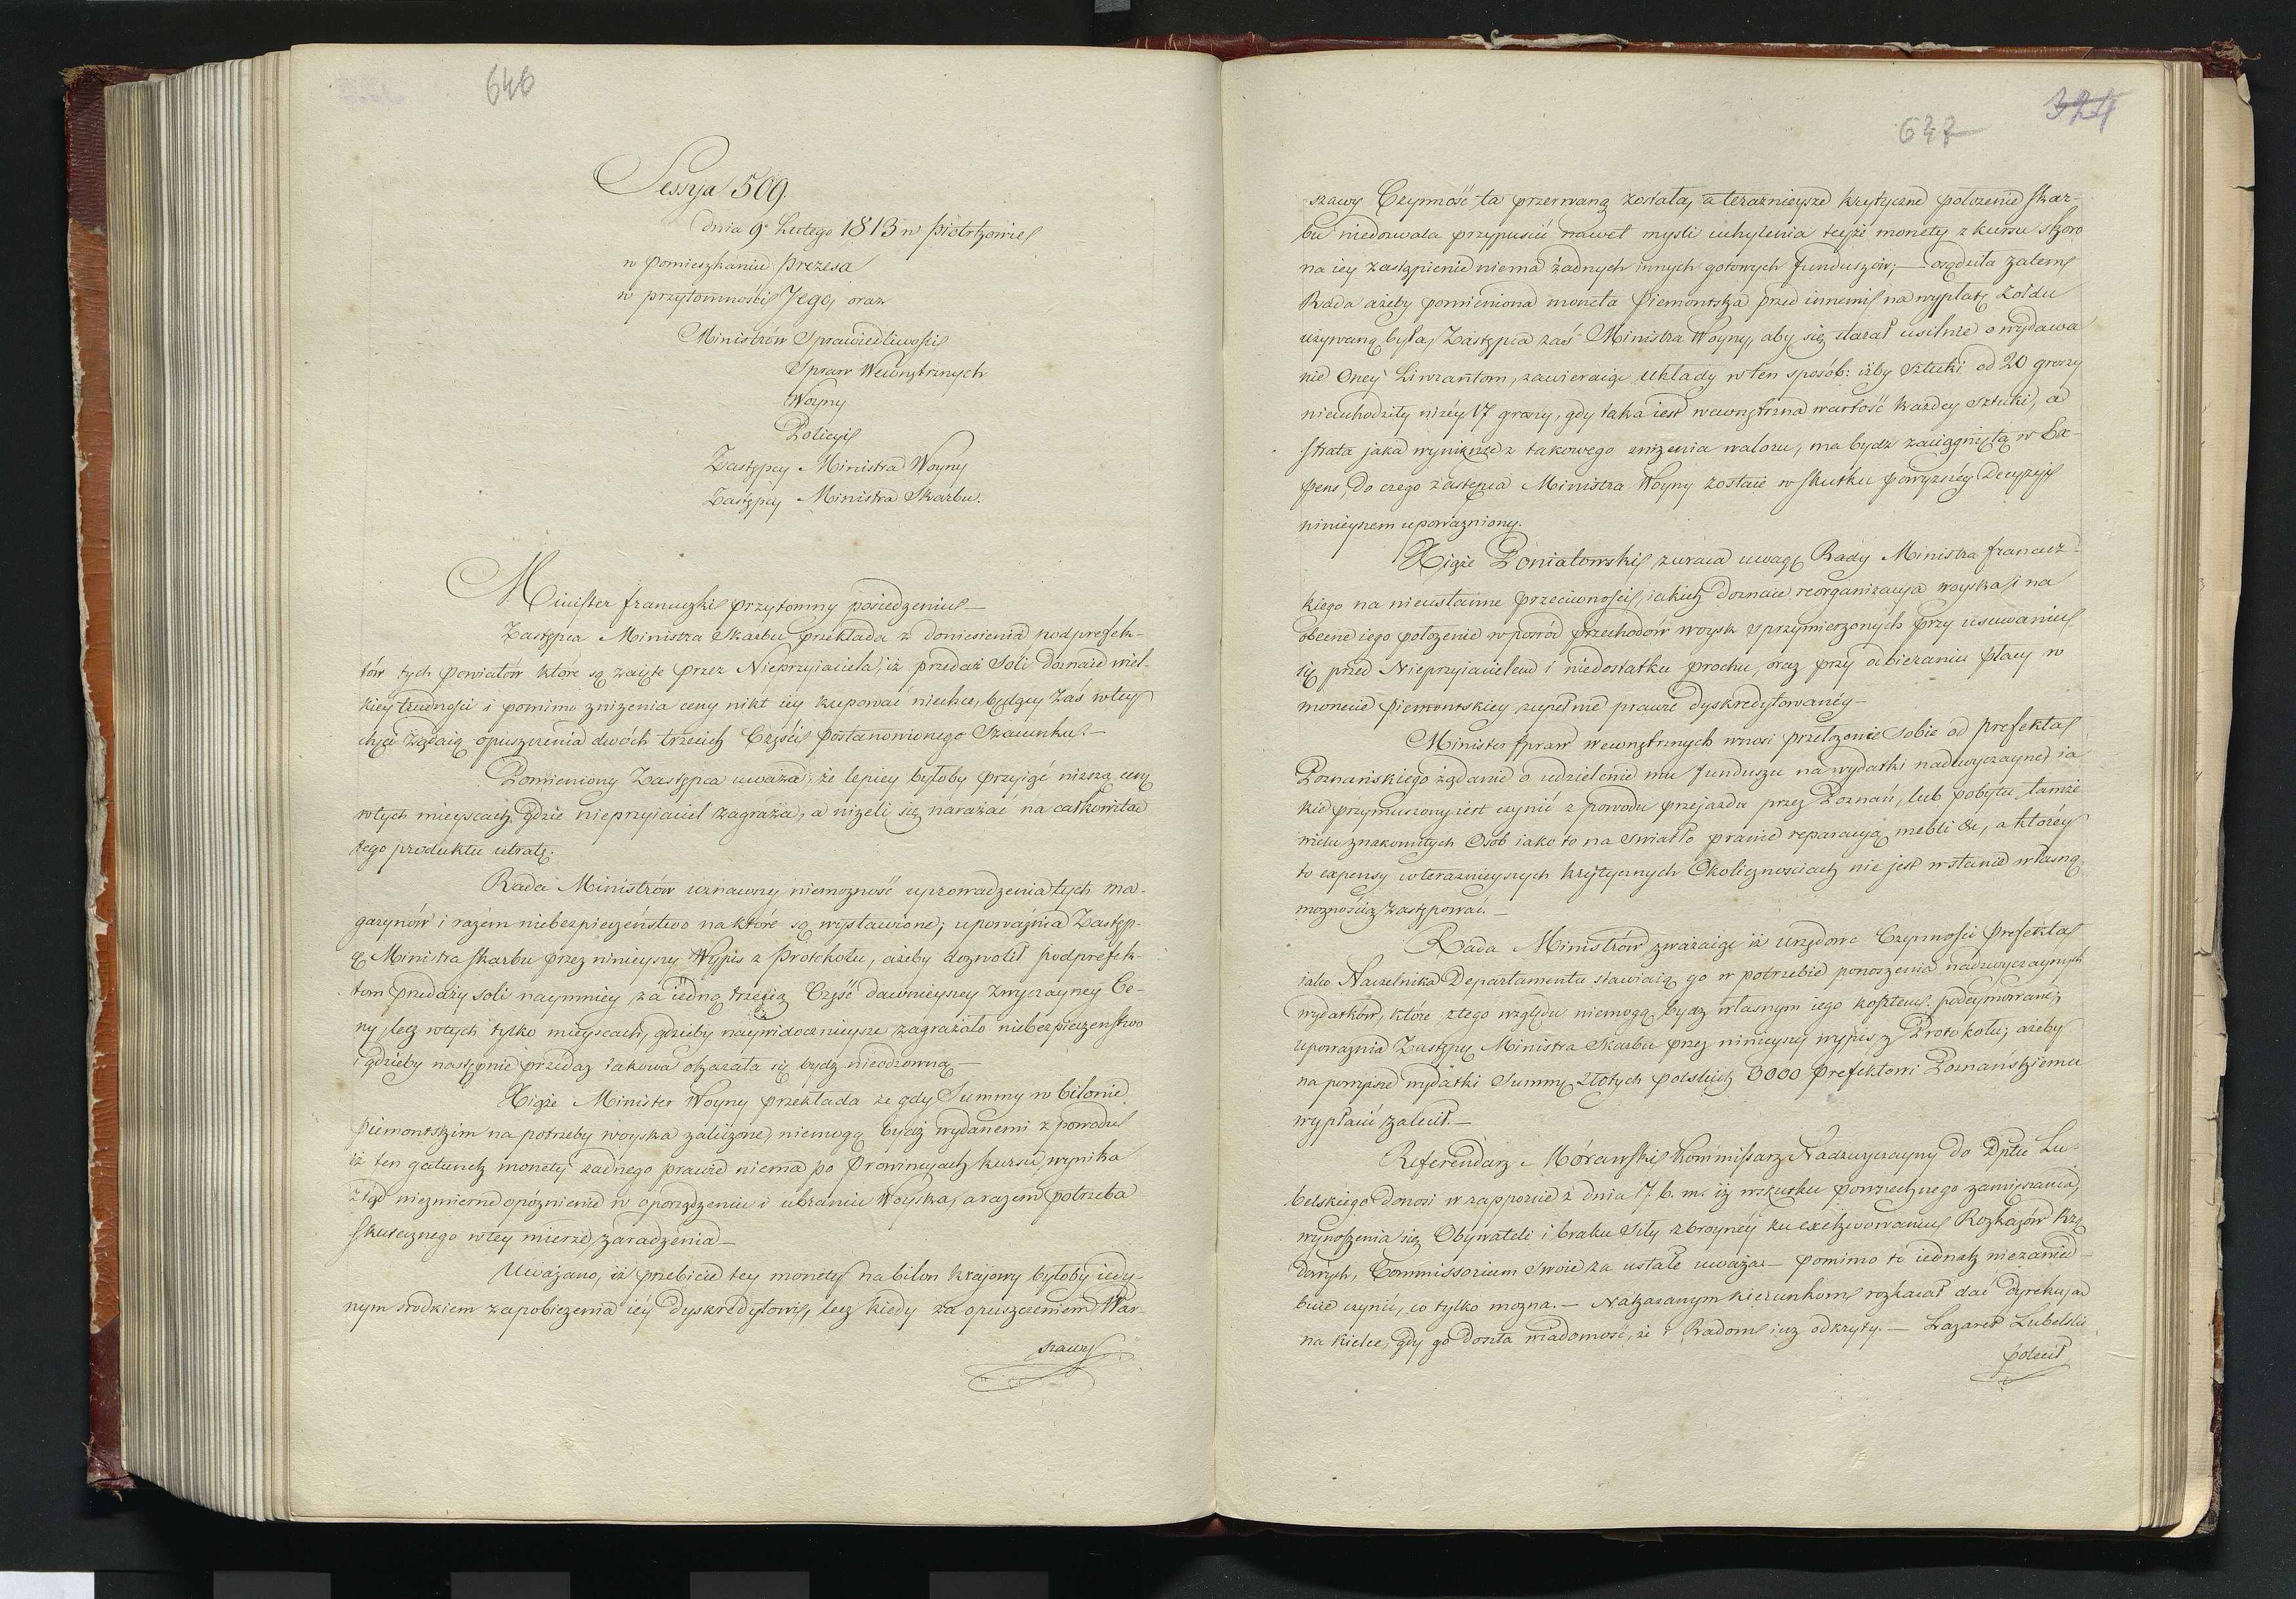 646
Sessya 509.
dnia 9º Lutego 1813 w Piotrkowie
w pomieszkaniu Prezesa
w przytomności Jego, oraz
Ministrów Sprawiedliwości
Spraw Wewnętrznych
Woyny
Policyi
Zastępcy Ministra Woyny
Zastępcy Ministra Skarbu.
Minister francuzki przytomny posiedzeniu —
Zastępca Ministra Skarbu przekłada z doniesienia podprefek-
tów tych powiatów które są zaięte przez Nieprzyiaciela, iż przedaż Soli doznaie wiel-
kiey trudności i pomimo zniżenia ceny nikt iéy kupować niechce, będący zaś w tey
chęci żądaią opuszczenia dwóch trzecich Części postanowionego Szacunku. —
Pomieniony Zastępca uważa że lepiey byłoby przyiąć niższą cenę
w tych mieyscach gdzie nieprzyiaciel zagraża, a niżeli się narażać na całkowitą
tego produktu utratę.
Rada Ministrów uznawszy niemożność uprowadzenia tych ma-
gazynów i razem niebezpieczeństwo na które są wystawione; upoważnia Zastęp-
cę Ministra Skarbu przez ninieyszy Wypis z Protokołu, ażeby dozwolił podprefek-
tom przedaży soli naymniey za iedną trzecią Część dawnieyszey zwyczayney Ce-
ny, lecz w tych tylko mieyscach, gdzieby naywidocznieysze zagrażało niebezpieczeństwo
i gdzieby następnie przedaż takowa okazała się bydź nieodzowną —
Xiąże Minister Woyny przekłada że gdy Summy w bilonie
piemontskim na potrzeby woyska zaliczone, niemogą bydź wydanemi z powodu
iż ten gatunek monety żadnego prawie niema po Prowincyach kursu, wynika
ztąd niezmierne opóźnienie w oporządzeniu i ubraniu Woyska, a razem potrzeba
skutecznego w tey mierze zaradzenia —
Uważano, iż przebicie tey monety na bilon kraiowy byłoby iedy-
nym srodkiem zapobieżenia iéy dyskredytowi, lecz kiedy za opuszczeniem War-
szawy
647
324
szawy Czynność ta przerwaną została, a teraznieysze krytyczne położenie Skar-
bu niedozwala przypuścić nawet myśli uchylenia teyże monety z kursu skoro
na iey zastąpienie niema żadnych innych gotowych funduszów; — osądziła zatem
Rada ażeby pomieniona moneta Piemontska przed innemi na wypłatę żołdu
używaną była, Zastępca zaś Ministra Woyny, aby się starał usilnie o wydawa
nie Oney Liwrantom, zawieraiąc układy w ten sposób: iżby Sztuki od 20 groszy
nieuchodziły niżéy 17 groszy, gdy taka iest wewnętrzna wartość każdey sztuki, a
strata jaka wyniknie z takowego zniżenia waloru, ma bydź zaciągnięta w Ex-
pens, do czego zastępca Ministra Woyny zostaie w skutku powyższéy Decyzyi
ninieyszem upoważniony.
Xiąże Poniatowski zwraca uwagę Rady Ministra francuz-
kiego na nieustanne przeciwności, iakich doznaie reorganizacya woyska i na
obecne iego położenie wpośród przechodów woysk sprzymierzonych przy usuwaniu
się przed Nieprzyiacielem i niedostatku prochu, oraz przy odbieraniu płacy w
monecie piemontskiey zupełnie prawie dyskredytowanéy —
Minister spraw wewnętrznych wnosi przełożone Sobie od prefekta
Poznańskiego żądanie o udzielenie mu funduszu na wydatki nadzwyczayne ia
kie przymuszony iest czynić z powodu przejazdu przez Poznań, lub pobytu tamże
wielu znakomitych Osób iako to na swiatło pranie reparacyą mebli &c, a któréy
to expensy w teraznieyszych krytycznych Okolicznosciach nie jest w stanie własną
możnością zastępować. —
Rada Ministrów zważaiąc iż urzędowe Czynności Prefekta
iako Naczelnika Departamentu stawiaią go w potrzebie ponoszenia nadzwyczaynych
wydatków, które z tego względu niemogą bydź własnym iego kosztem podeymowane;
upoważnia Zastępcę Ministra Skarbu przez ninieyszy wypis z Protokołu; ażeby
na powyższe wydatki Summę złotych polskich 3000 Prefektowi Poznańskiemu
wypłacić zalecił. —
Referendarz Morawski Kommissarz Nadzwyczayny do Dptu Lu-
belskiego donosi w rapporcie z dnia 7. b. m. iż w skutku powszechnego zamięszania,
wynoszenia się Obywateli i braku siły zbroyney ku exekwowaniu Rozkazów Rzą
dowych, Commissorium swoie za ustałe uważa — pomimo to iednak niezanied-
buie czynić, co tylko można. — Nakazanym kierunkom rozkazał dać dyrekcyą
na Kielce, gdy go doszła wiadomość, że i Radom iuż odkryty. — Lazaret Lubelski
polecił